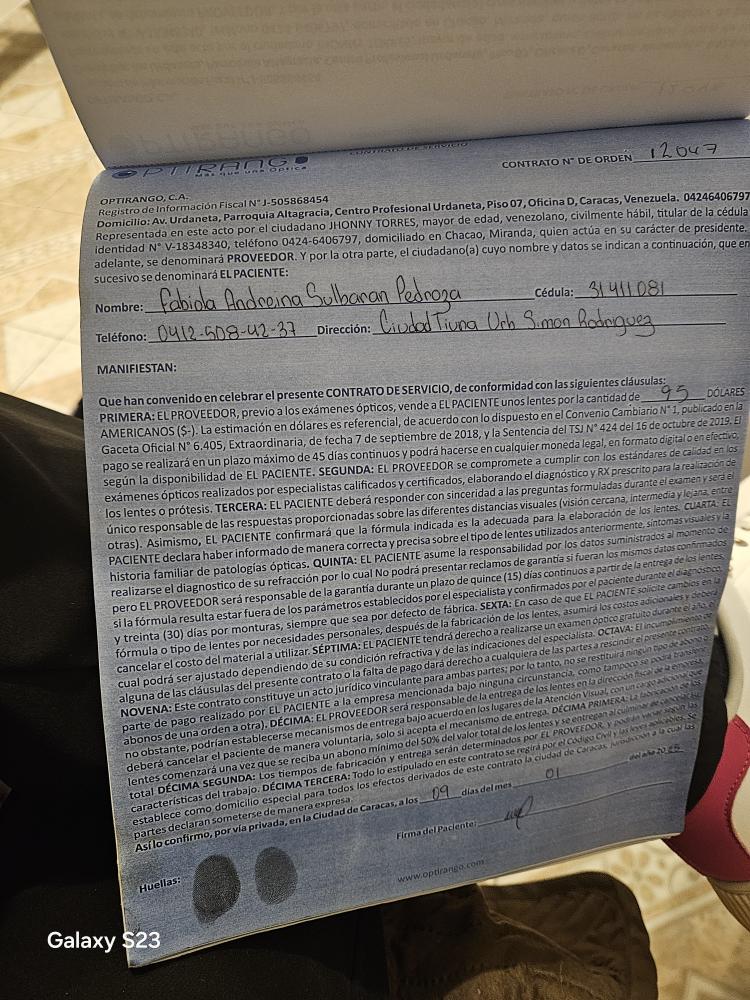 OPTIRANGO
Más que una Óptica
CONTRATO DE SERVICIO
CONTRATO N° DE ORDEN 12047
OPTIRANGO, C.A.
Registro de Información Fiscal N° J-505868454
Domicilio: Av. Urdaneta, Parroquia Altagracia, Centro Profesional Urdaneta, Piso 07, Oficina D, Caracas, Venezuela. 04246406797
Representada en este acto por el ciudadano JHONNY TORRES, mayor de edad, venezolano, civilmente hábil, titular de la cédula
identidad N° V-18348340, teléfono 0424-6406797, domiciliado en Chacao, Miranda, quien actúa en su carácter de presidente.
adelante, se denominará PROVEEDOR. Y por la otra parte, el ciudadano(a) cuyo nombre y datos se indican a continuación, que en
sucesivo se denominará EL PACIENTE:
Nombre: Fabiola Andreina Sulbaran Pedroza Cédula: 31411081
Teléfono: 0412-508-42-37 Dirección: Ciudad Tiuna Urb Simon Rodriguez
MANIFIESTAN:
Que han convenido en celebrar el presente CONTRATO DE SERVICIO, de conformidad con las siguientes cláusulas:
PRIMERA: EL PROVEEDOR, previo a los exámenes ópticos, vende a EL PACIENTE unos lentes por la cantidad de 95 DÓLARES
AMERICANOS ($-). La estimación en dólares es referencial, de acuerdo con lo dispuesto en el Convenio Cambiario N° 1, publicado en la
Gaceta Oficial N° 6.405, Extraordinaria, de fecha 7 de septiembre de 2018, y la Sentencia del TSJ N° 424 del 16 de octubre de 2019. El
pago se realizará en un plazo máximo de 45 días continuos y podrá hacerse en cualquier moneda legal, en formato digital o en efectivo,
según la disponibilidad de EL PACIENTE. SEGUNDA: EL PROVEEDOR se compromete a cumplir con los estándares de calidad en los
exámenes ópticos realizados por especialistas calificados y certificados, elaborando el diagnóstico y RX prescrito para la realización de
los lentes o prótesis. TERCERA: EL PACIENTE deberá responder con sinceridad a las preguntas formuladas durante el examen y será el
único responsable de las respuestas proporcionadas sobre las diferentes distancias visuales (visión cercana, intermedia y lejana, entre
otras). Asimismo, EL PACIENTE confirmará que la fórmula indicada es la adecuada para la elaboración de los lentes. CUARTA: EL
PACIENTE declara haber informado de manera correcta y precisa sobre el tipo de lentes utilizados anteriormente, síntomas visuales y la
historia familiar de patologías ópticas. QUINTA: EL PACIENTE asume la responsabilidad por los datos suministrados al momento de
realizarse el diagnostico de su refracción por lo cual No podrá presentar reclamos de garantía si fueran los mismos datos confirmados
pero EL PROVEEDOR será responsable de la garantía durante un plazo de quince (15) días continuos a partir de la entrega de los lentes,
si la fórmula resulta estar fuera de los parámetros establecidos por el especialista y confirmados por el paciente durante el diagnóstico
y treinta (30) días por monturas, siempre que sea por defecto de fábrica. SEXTA: En caso de que EL PACIENTE solicite cambios en la
fórmula o tipo de lentes por necesidades personales, después de la fabricación de los lentes, asumirá los costos adicionales y deberá
cancelar el costo del material a utilizar. SÉPTIMA: EL PACIENTE tendrá derecho a realizarse un examen óptico gratuito durante el año, el
cual podrá ser ajustado dependiendo de su condición refractiva y de las indicaciones del especialista. OCTAVA: El incumplimiento de
alguna de las cláusulas del presente contrato o la falta de pago dará derecho a cualquiera de las partes a rescindir el presente contrato.
NOVENA: Este contrato constituye un acto jurídico vinculante para ambas partes; por lo tanto, no se restituirá ningún tipo de abono o
parte de pago realizado por EL PACIENTE a la empresa mencionada bajo ninguna circunstancia, como tampoco se podrá transferir
abonos de una orden a otra). DÉCIMA: EL PROVEEDOR será responsable de la entrega de los lentes en la dirección fiscal de la empresa,
no obstante, podrían establecerse mecanismos de entrega bajo acuerdo en los lugares de la Atención Visual, con un cargo adicional que
deberá cancelar el paciente de manera voluntaria, solo si acepta el mecanismo de entrega. DÉCIMA PRIMERA: La fabricación de los
lentes comenzará una vez que se reciba un abono mínimo del 50% del valor total de los lentes y se entregan al culminar de
total DÉCIMA SEGUNDA: Los tiempos de fabricación y entrega serán determinados por EL PROVEEDOR. Y podrán variar según las
características del trabajo. DÉCIMA TERCERA: Todo lo estipulado en este contrato se regirá por el Código Civil y las leyes aplicables. Se
establece como domicilio especial para todos los efectos derivados de este contrato la ciudad de Caracas, jurisdicción a la cual las
partes declaran someterse de manera expresa.
Así lo confirmo, por vía privada, en la Ciudad de Caracas, a los 09 días del mes 01 del año 2025
Firma del Paciente:
Huellas:
www.optirango.com
Galaxy S23